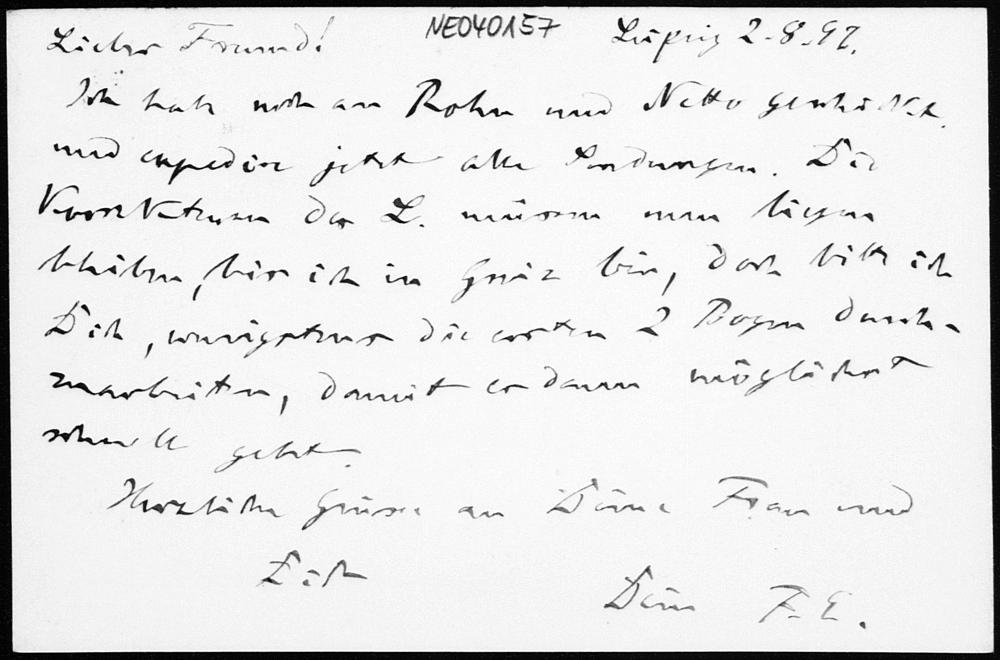 NE040157
Lieber Freund! Leipzig 2.8.97.
Ich habe noch an Rohn und Netto geschickt
und expedire jetzt alle Sendungen. Die
Korrekturen der L. müssen nun liegen
bleiben, bis ich in Graz bin, doch bitte ich
Dich, wenigstens die ersten 2 Bogen durch-
zuarbeiten, damit es dann möglichst
schnell geht.
Herzliche Grüsse an Deine Frau und
Dich
Dein F. E.